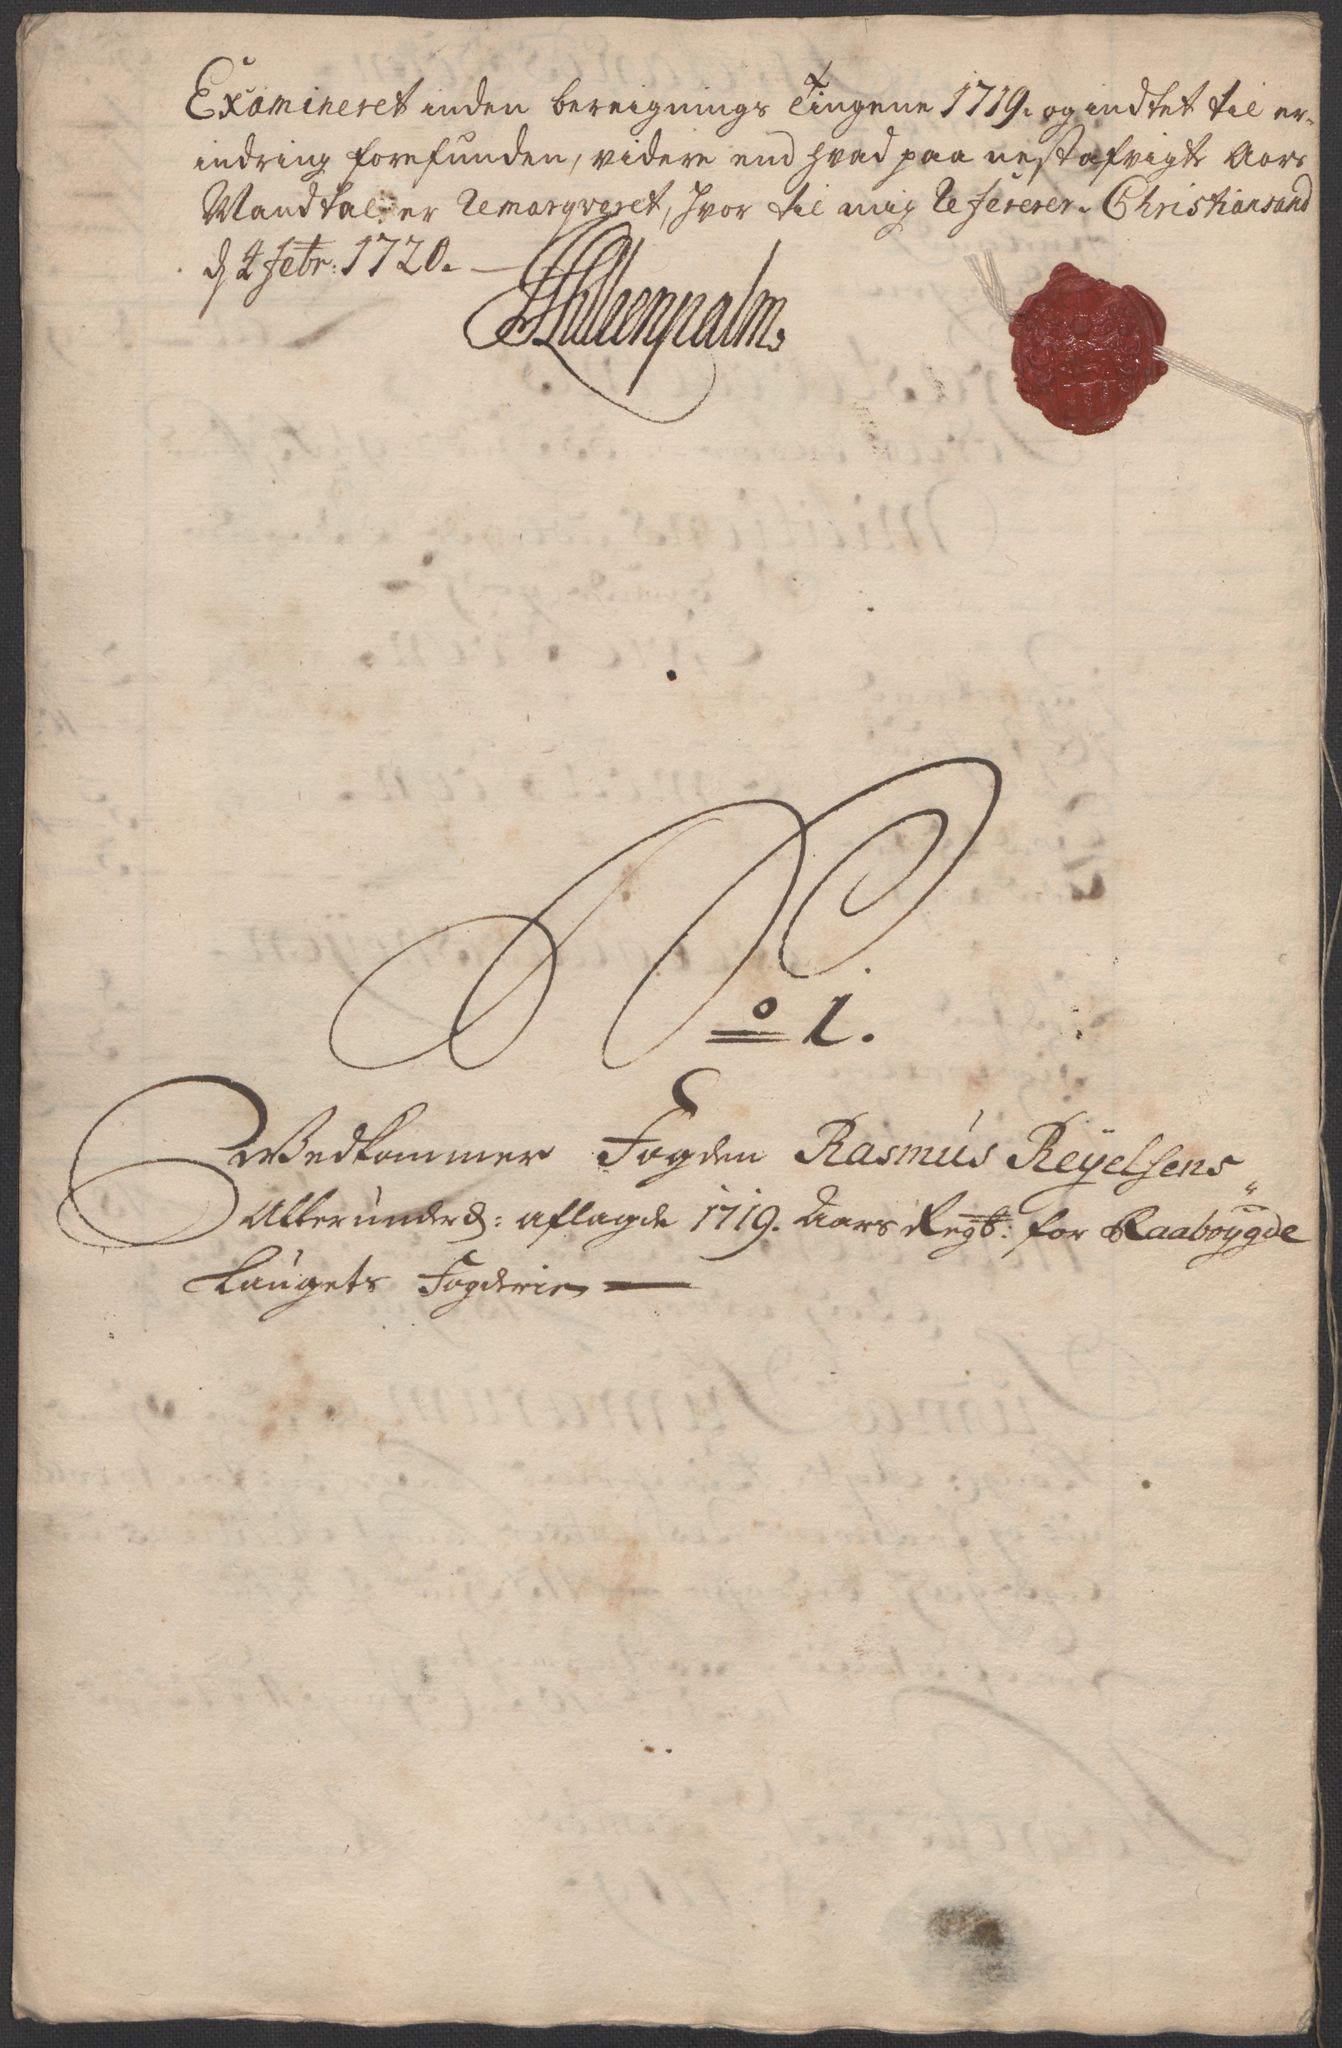 Examineret inden bereignings Tingene 1719. og indtet til er-
indring forefunden, videre end hvad paa nestafvigte Aars
Mandtal er Remarqveret, hvor til mig Refererer. Christiansand
d 2 febr: 1720.
No 1.
Vedkommer Fogden Rasmus Reyelsens
Allerunderd: aflagde 1719. Aars Regt: for Raabøygde
Laugets Fogderie